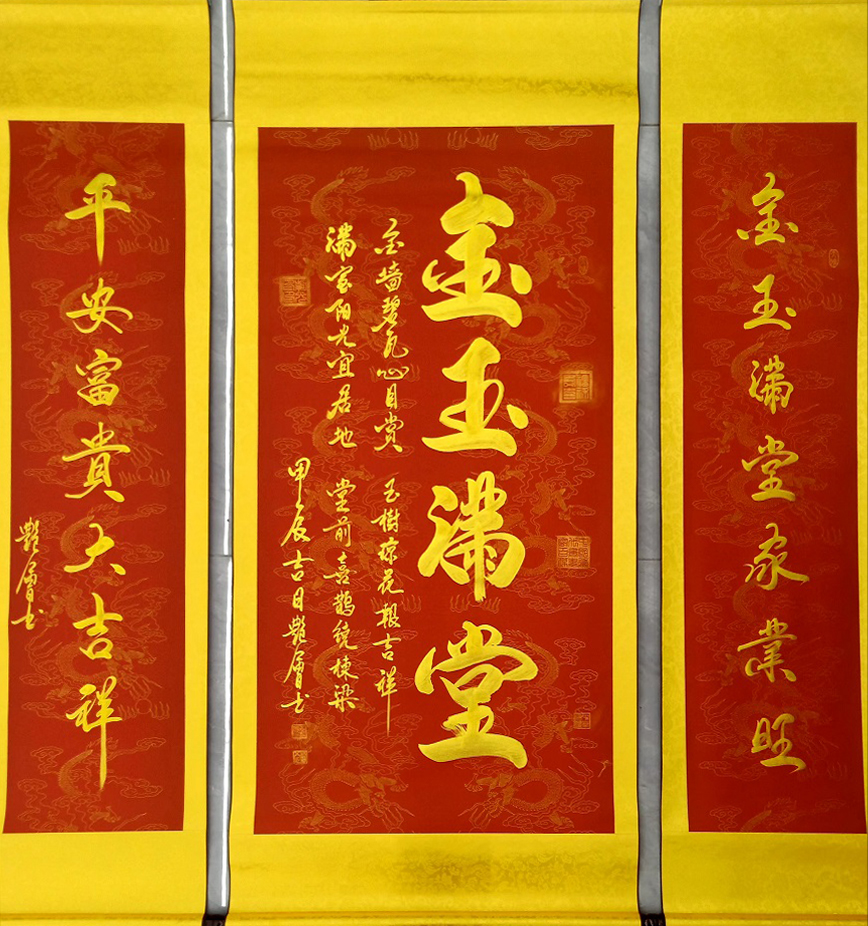 金玉满堂家业旺
金玉满堂
金墙碧瓦心目赏 玉樹琼花报吉祥
满室阳光宜居地 堂前喜鹊绕栋梁
甲辰吉日艷會书
平安富貴大吉祥
艷會书